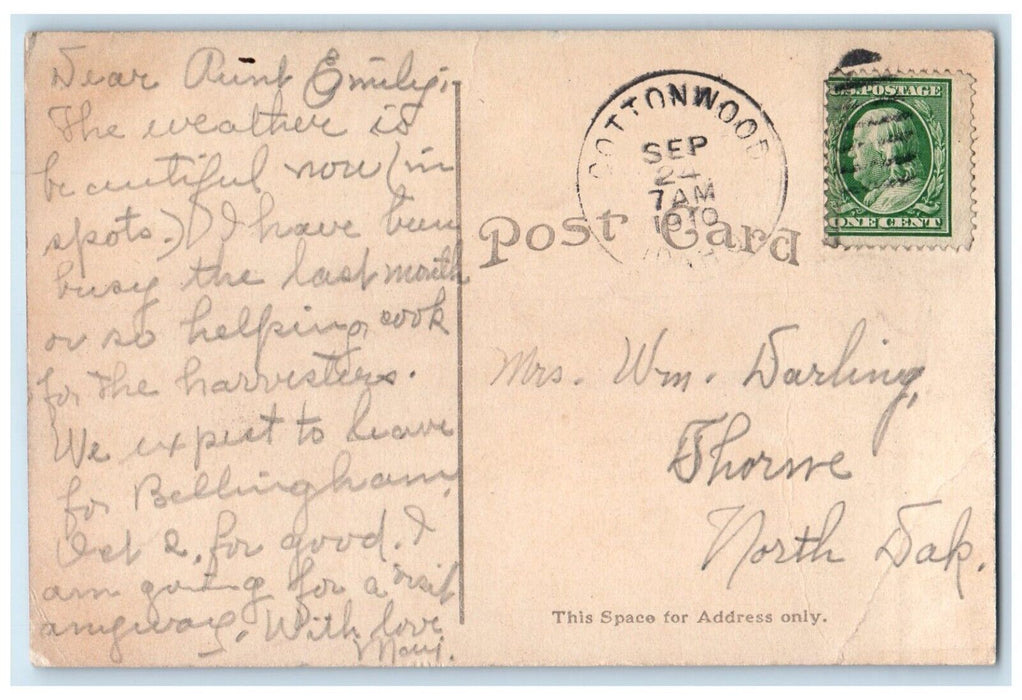 Dear Aunt Emily;
The weather is
beautiful now (in
spots.) I have been
busy the last month
or so helping cook
for the harvesters.
We expect to leave
for Bellingham,
Oct 2, for good. I
am going for a visit
anyway. With love
COTTONWOOD
SEP
24
7 AM
1910
U.S. POSTAGE
ONE CENT
Post Card
Mrs. Wm. Darling,
Thorne
North Dak.
This Space for Address only.